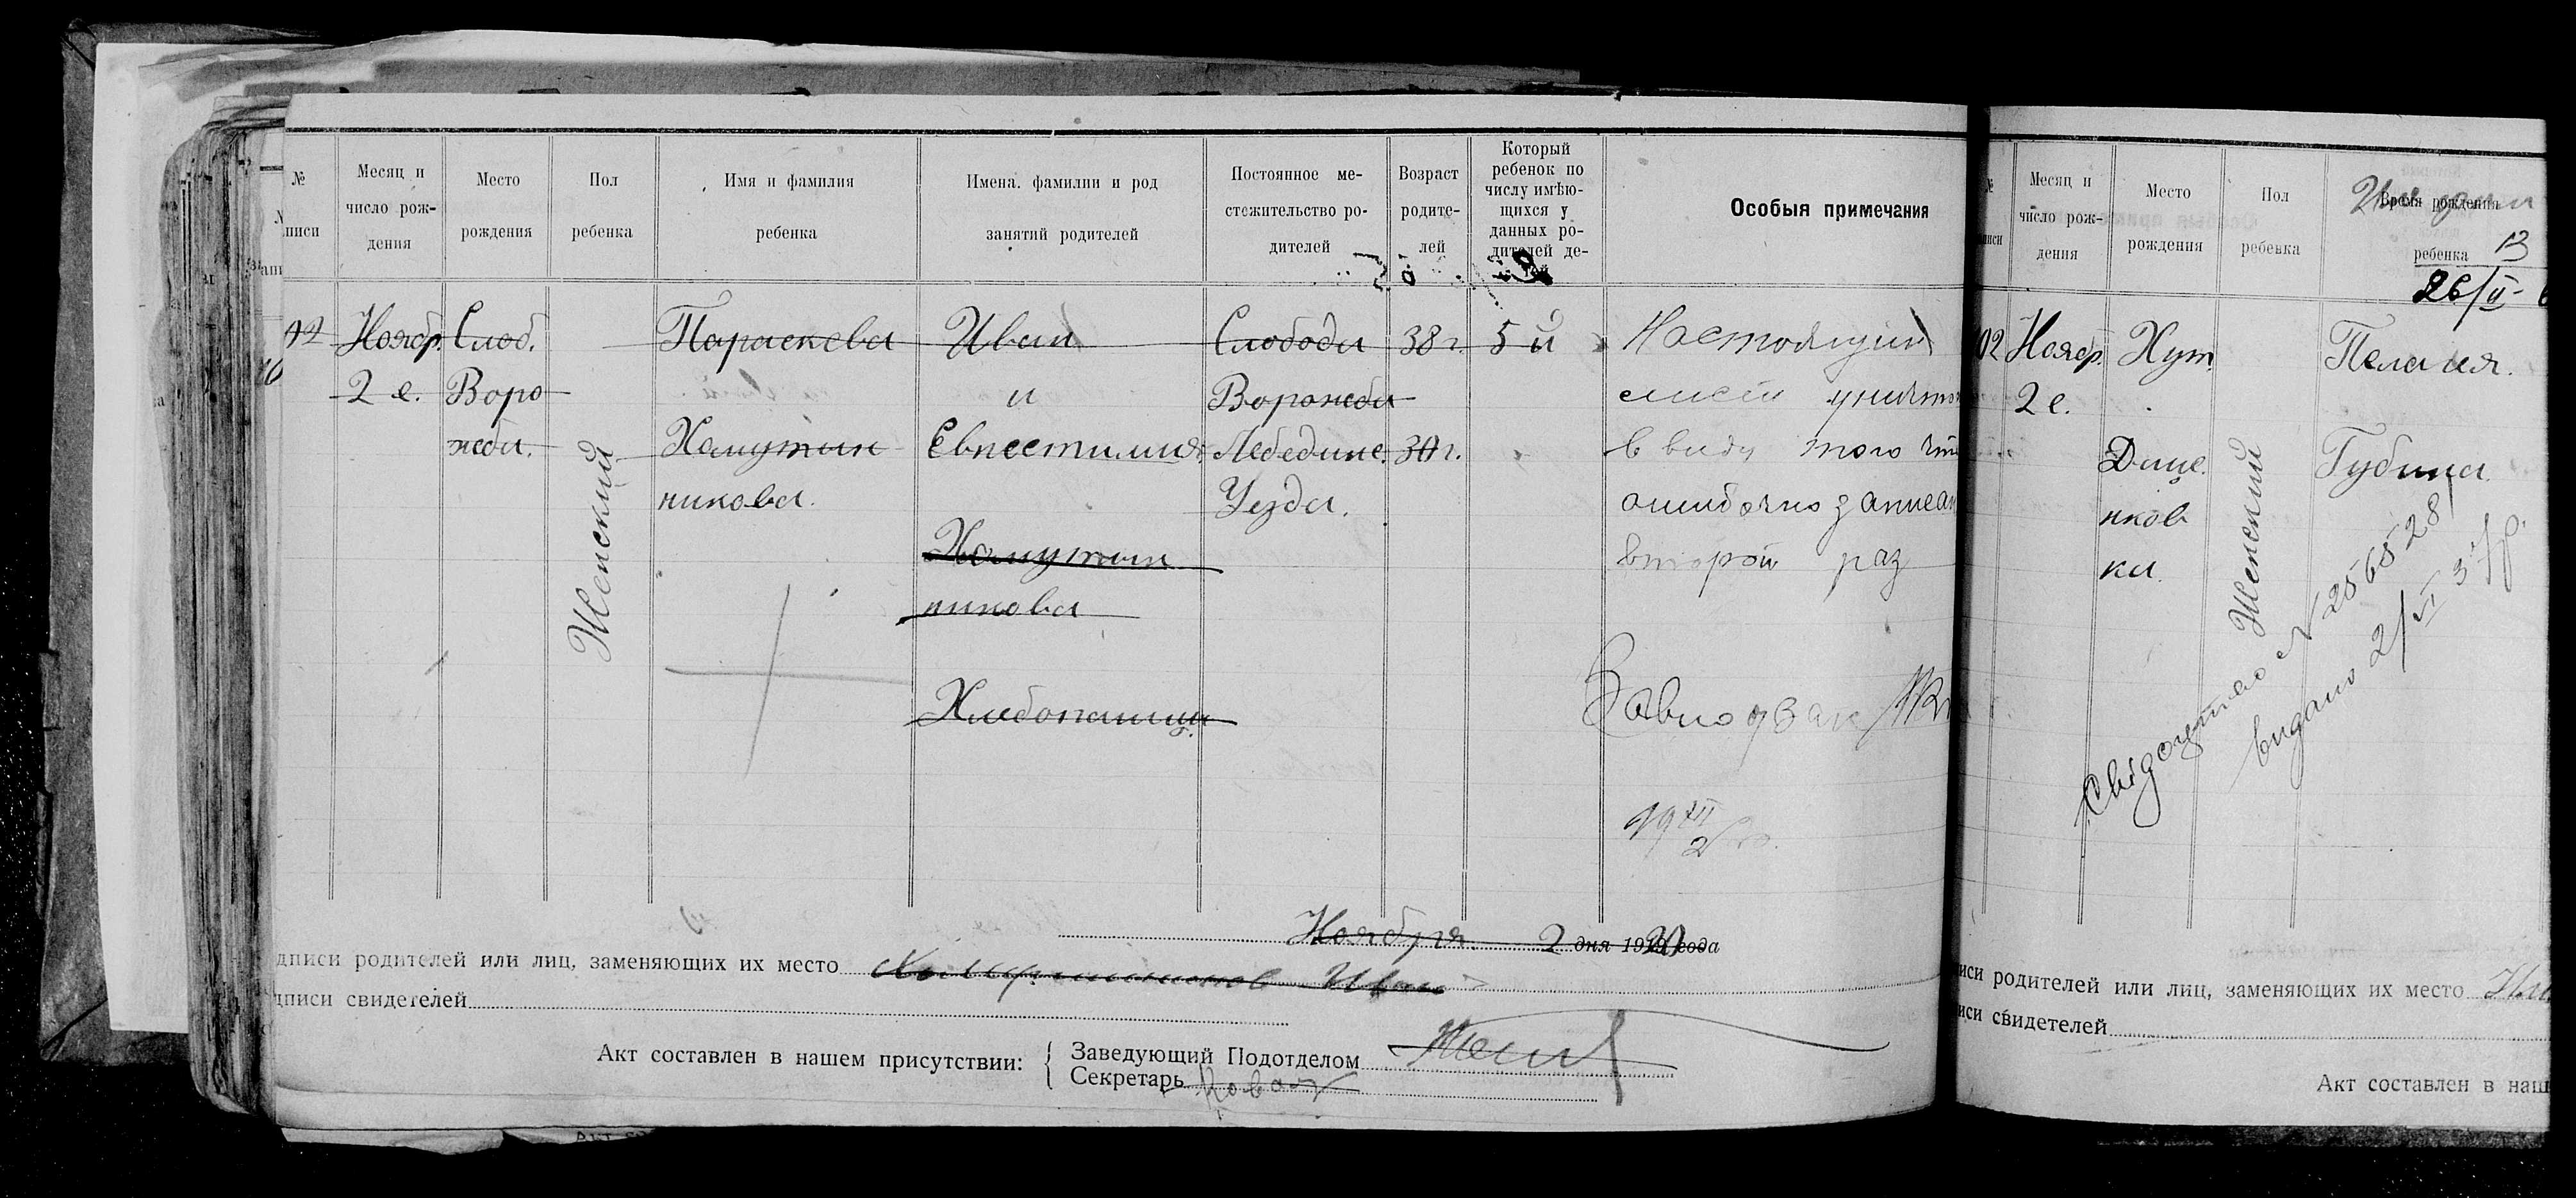 №
писи
Месяц и
число рож-
дения
Место
рождения
Пол
ребенка
Имя и фамилия
ребенка
Имена, фамилии и род
занятий родителей
Постоянное ме-
стожительство ро-
дителей
Возраст
родите-
лей
Который
ребенок по
числу имѣю-
щихся у
данных ро-
дителей де-
тей
Особыя примечания
Ноябр.
2 е.
Слоб.
Воро
жби.
Женский
Параскева
Хамутин
никова.
Иван
и
Евпестимия
Хамутин
никова
Хлебопашцы
Слобода
Ворожба
Лебедине.
Уезда.
38 г.
30 г.
5 й
Настоящий
лист уничто
в виду того что
ошибочно записан
второй раз
Ноября 2 дня 1920 года
дписи родителей или лиц, заменяющих их место Иван
дписи свидетелей
Акт составлен в нашем присутствии:
Заведующий Подотделом
Секретарь Ковал
№
писи
Месяц и
число рож-
дения
Место
рождения
Пол
ребенка
Время рождения
ребенка 13
26/II-
02
Ноябр.
2 е.
Хут.
Даце.
нков
ка.
Женский
Пелагия.
Губина
Свідоцтво № 2565281
видано 2/VI 35 р.
иси родителей или лиц, заменяющих их место
иси свидетелей
Акт составлен в наш